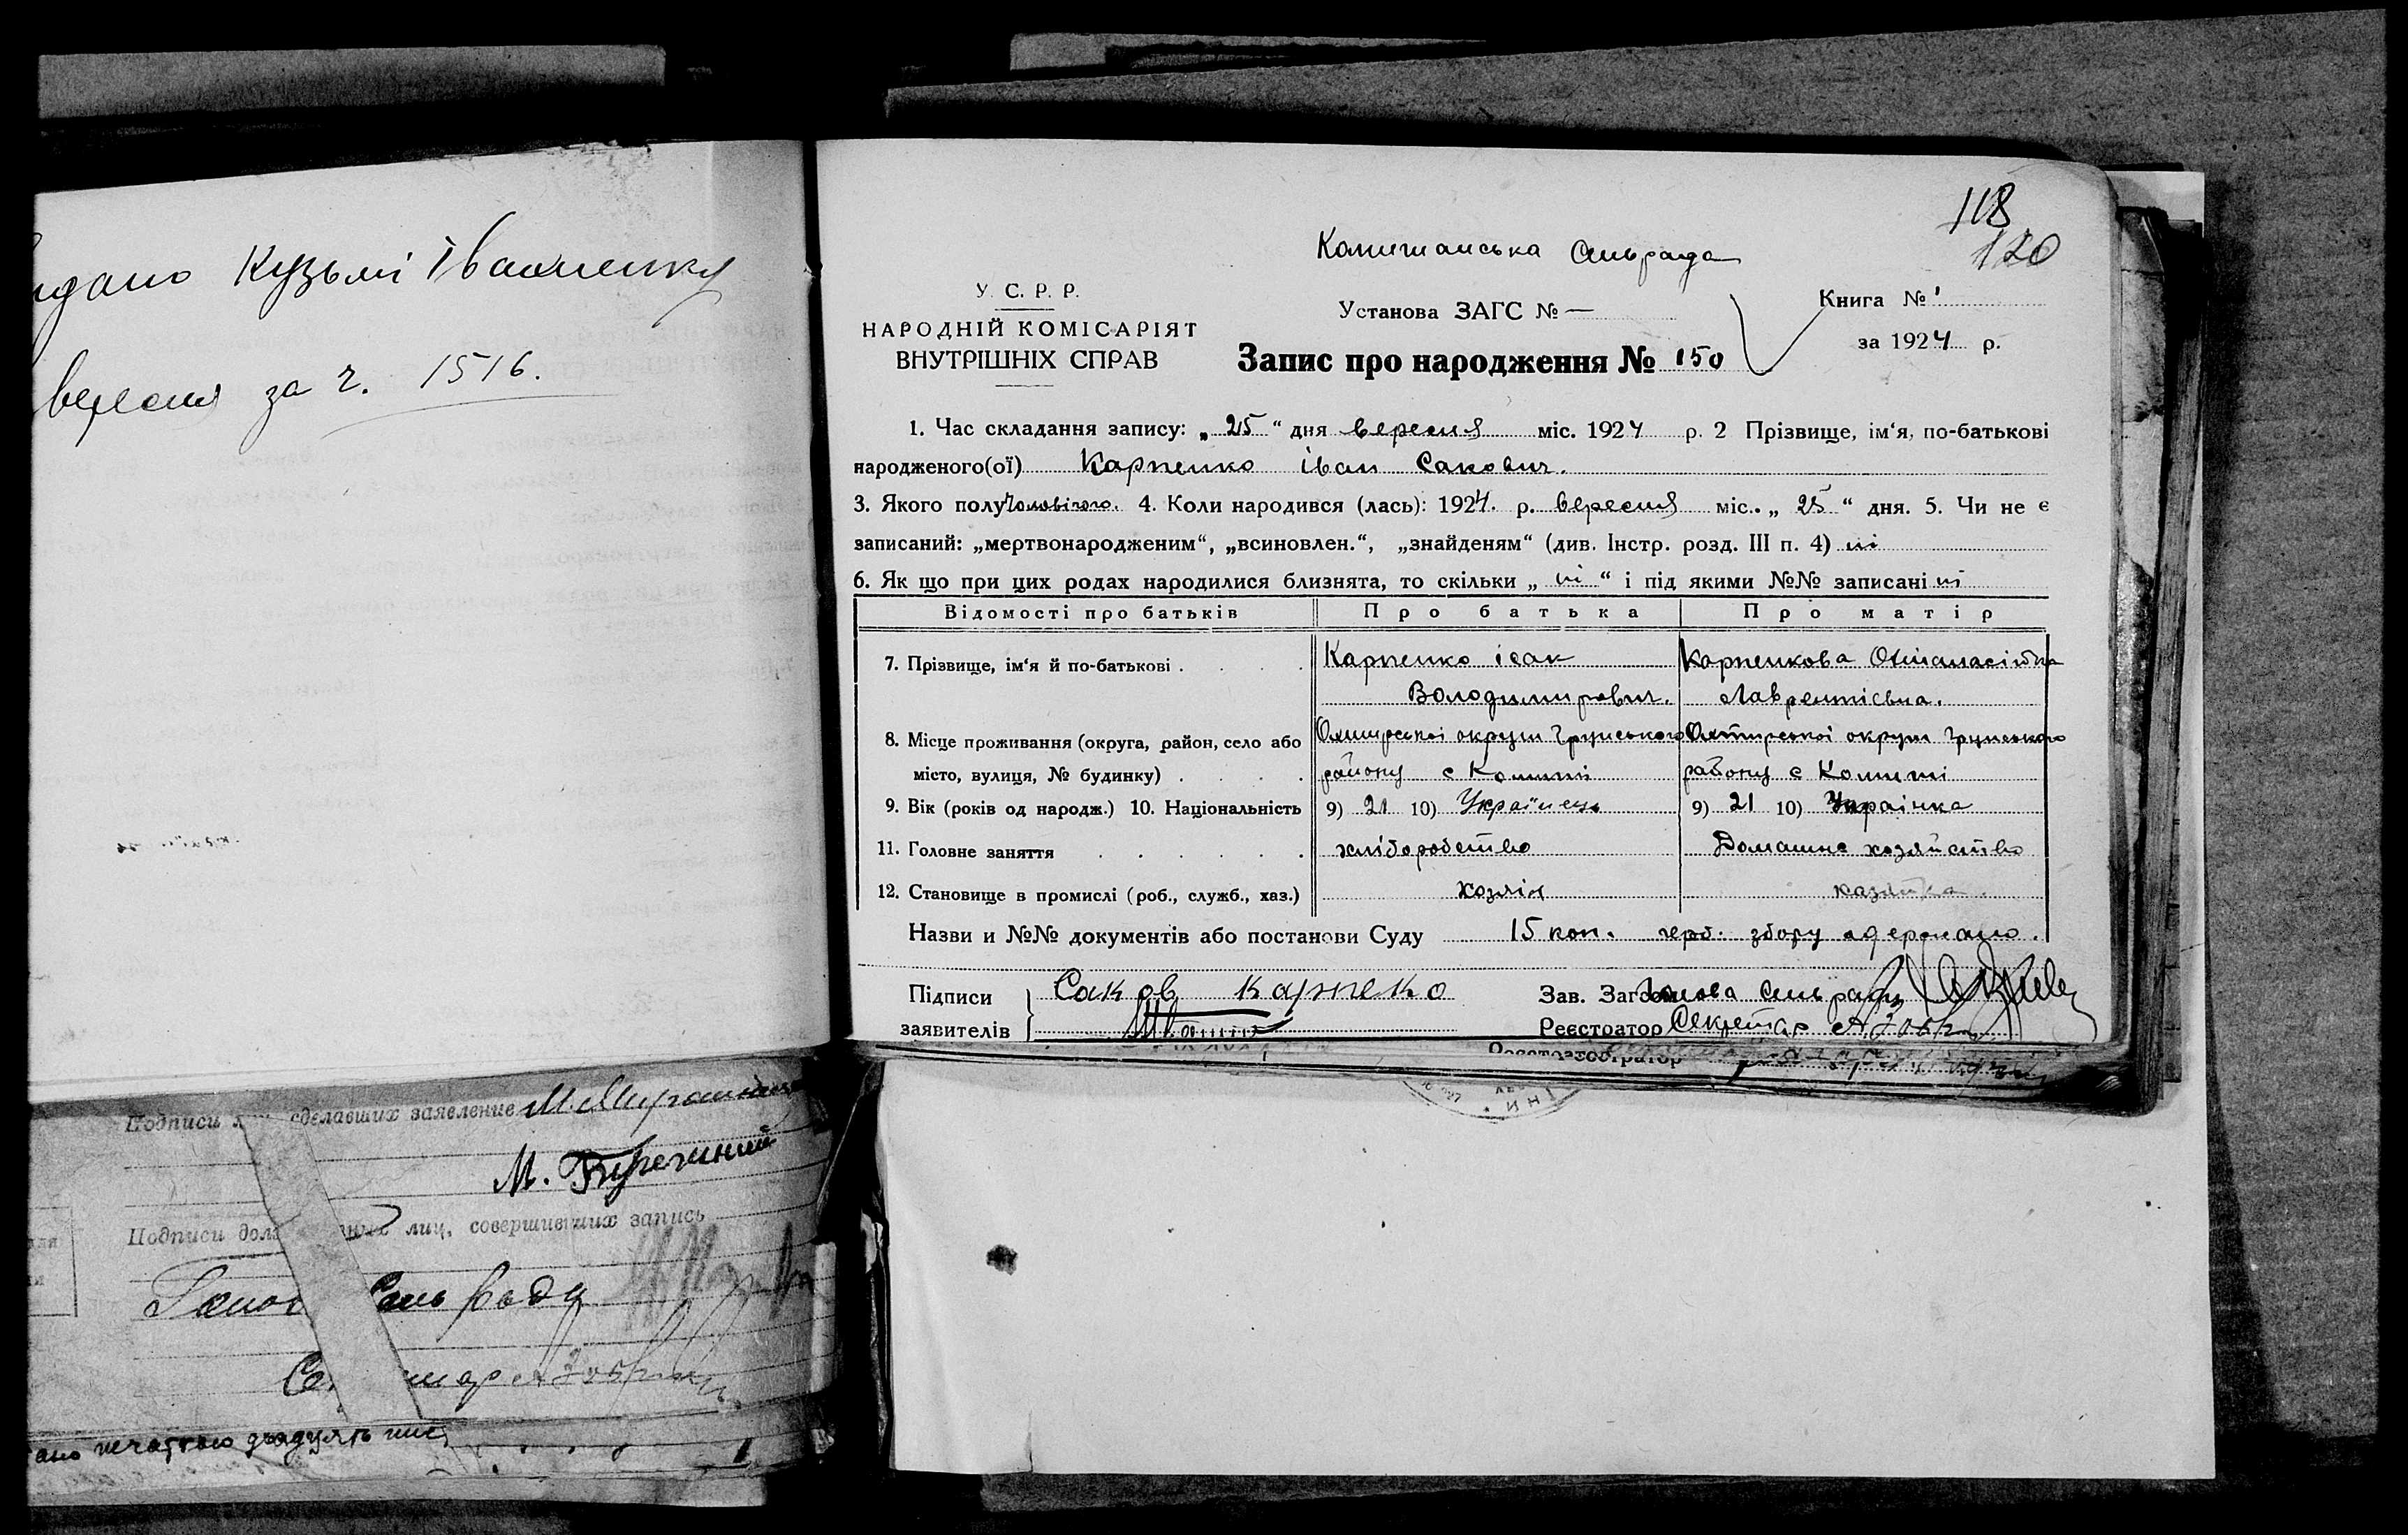 Кузьмі Іванченку
вересня за ч. 1516.
118
120
Комишанська Сільрада
У. С. Р. Р.
НАРОДНІЙ КОМІСАРІЯТ
ВНУТРІШНІХ СПРАВ
Установа ЗАГС № —
Запис про народження № 150
Книга № 1
за 1924 р.
1. Час складання запису: „ 25 “ дня вересня міс. 1924 р. 2 Прізвище, ім‘я, по-батькові
народженого(ої) Карпенко Іван Сакович.
3. Якого полу Чоловічого. 4. Коли народився (лась): 1924. р. вересня міс. „ 25 “ дня. 5. Чи не є
записаний: „мертвонародженим“, „всиновлен.“, „знайденям“ (див. Інстр. розд. III п. 4) ні
6. Як що при цих родах народилися близнята, то скільки „ ні “ і під якими №№ записані ні
Відомості про батьків Про батька Про матір
7. Прізвище, ім‘я й по-батькові . Карпенко ісак Карпенкова
Володимирович. Лаврентієвна.
8. Місце проживання (округа, район, село або Охтирської округи Грунського Охтирської округи Грунського
місто, вулиця, № будинку) . району с Комиші району с Комиші
9. Вік (років од народж.) 10. Національність 9) 21 10) Українець 9) 21 10) Українка
11. Головне заняття хліборобство Домашнє хозяйство
12. Становище в промислі (роб., служб., хаз.) хозяін хазяйка.
Назви и №№ документів або постанови Суду 15 коп. герб. збору одержано.
Підписи Саков карпеко Зав. Загсом Голова Сільради
заявителів Реєстратор Секретар
Подписи сделавших заявление
М.
Подписи лиц, совершивших запись
Сель рады
печаткою